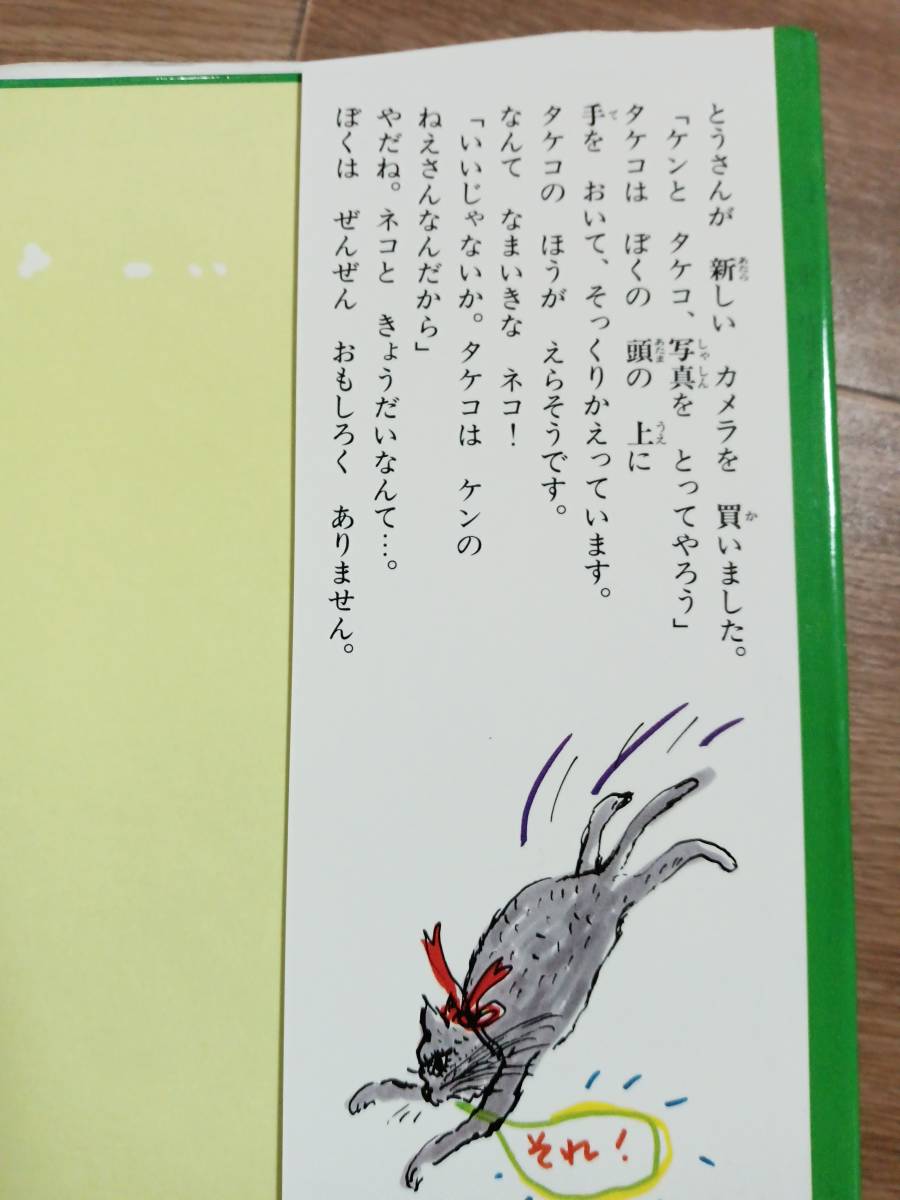 とうさんが　新しい　カメラを　買いました。
「ケンと　タケコ、写真を　とってやろう」
タケコは　ぼくの　頭の　上に
手を　おいて、そっくりかえっています。
タケコの　ほうが　えらそうです。
なんて　なまいきな　ネコ！
「いいじゃないか。タケコは　ケンの
ねえさんなんだから」
やだね。ネコと　きょうだいなんて…。
ぼくは　ぜんぜん　おもしろく　ありません。
それ！